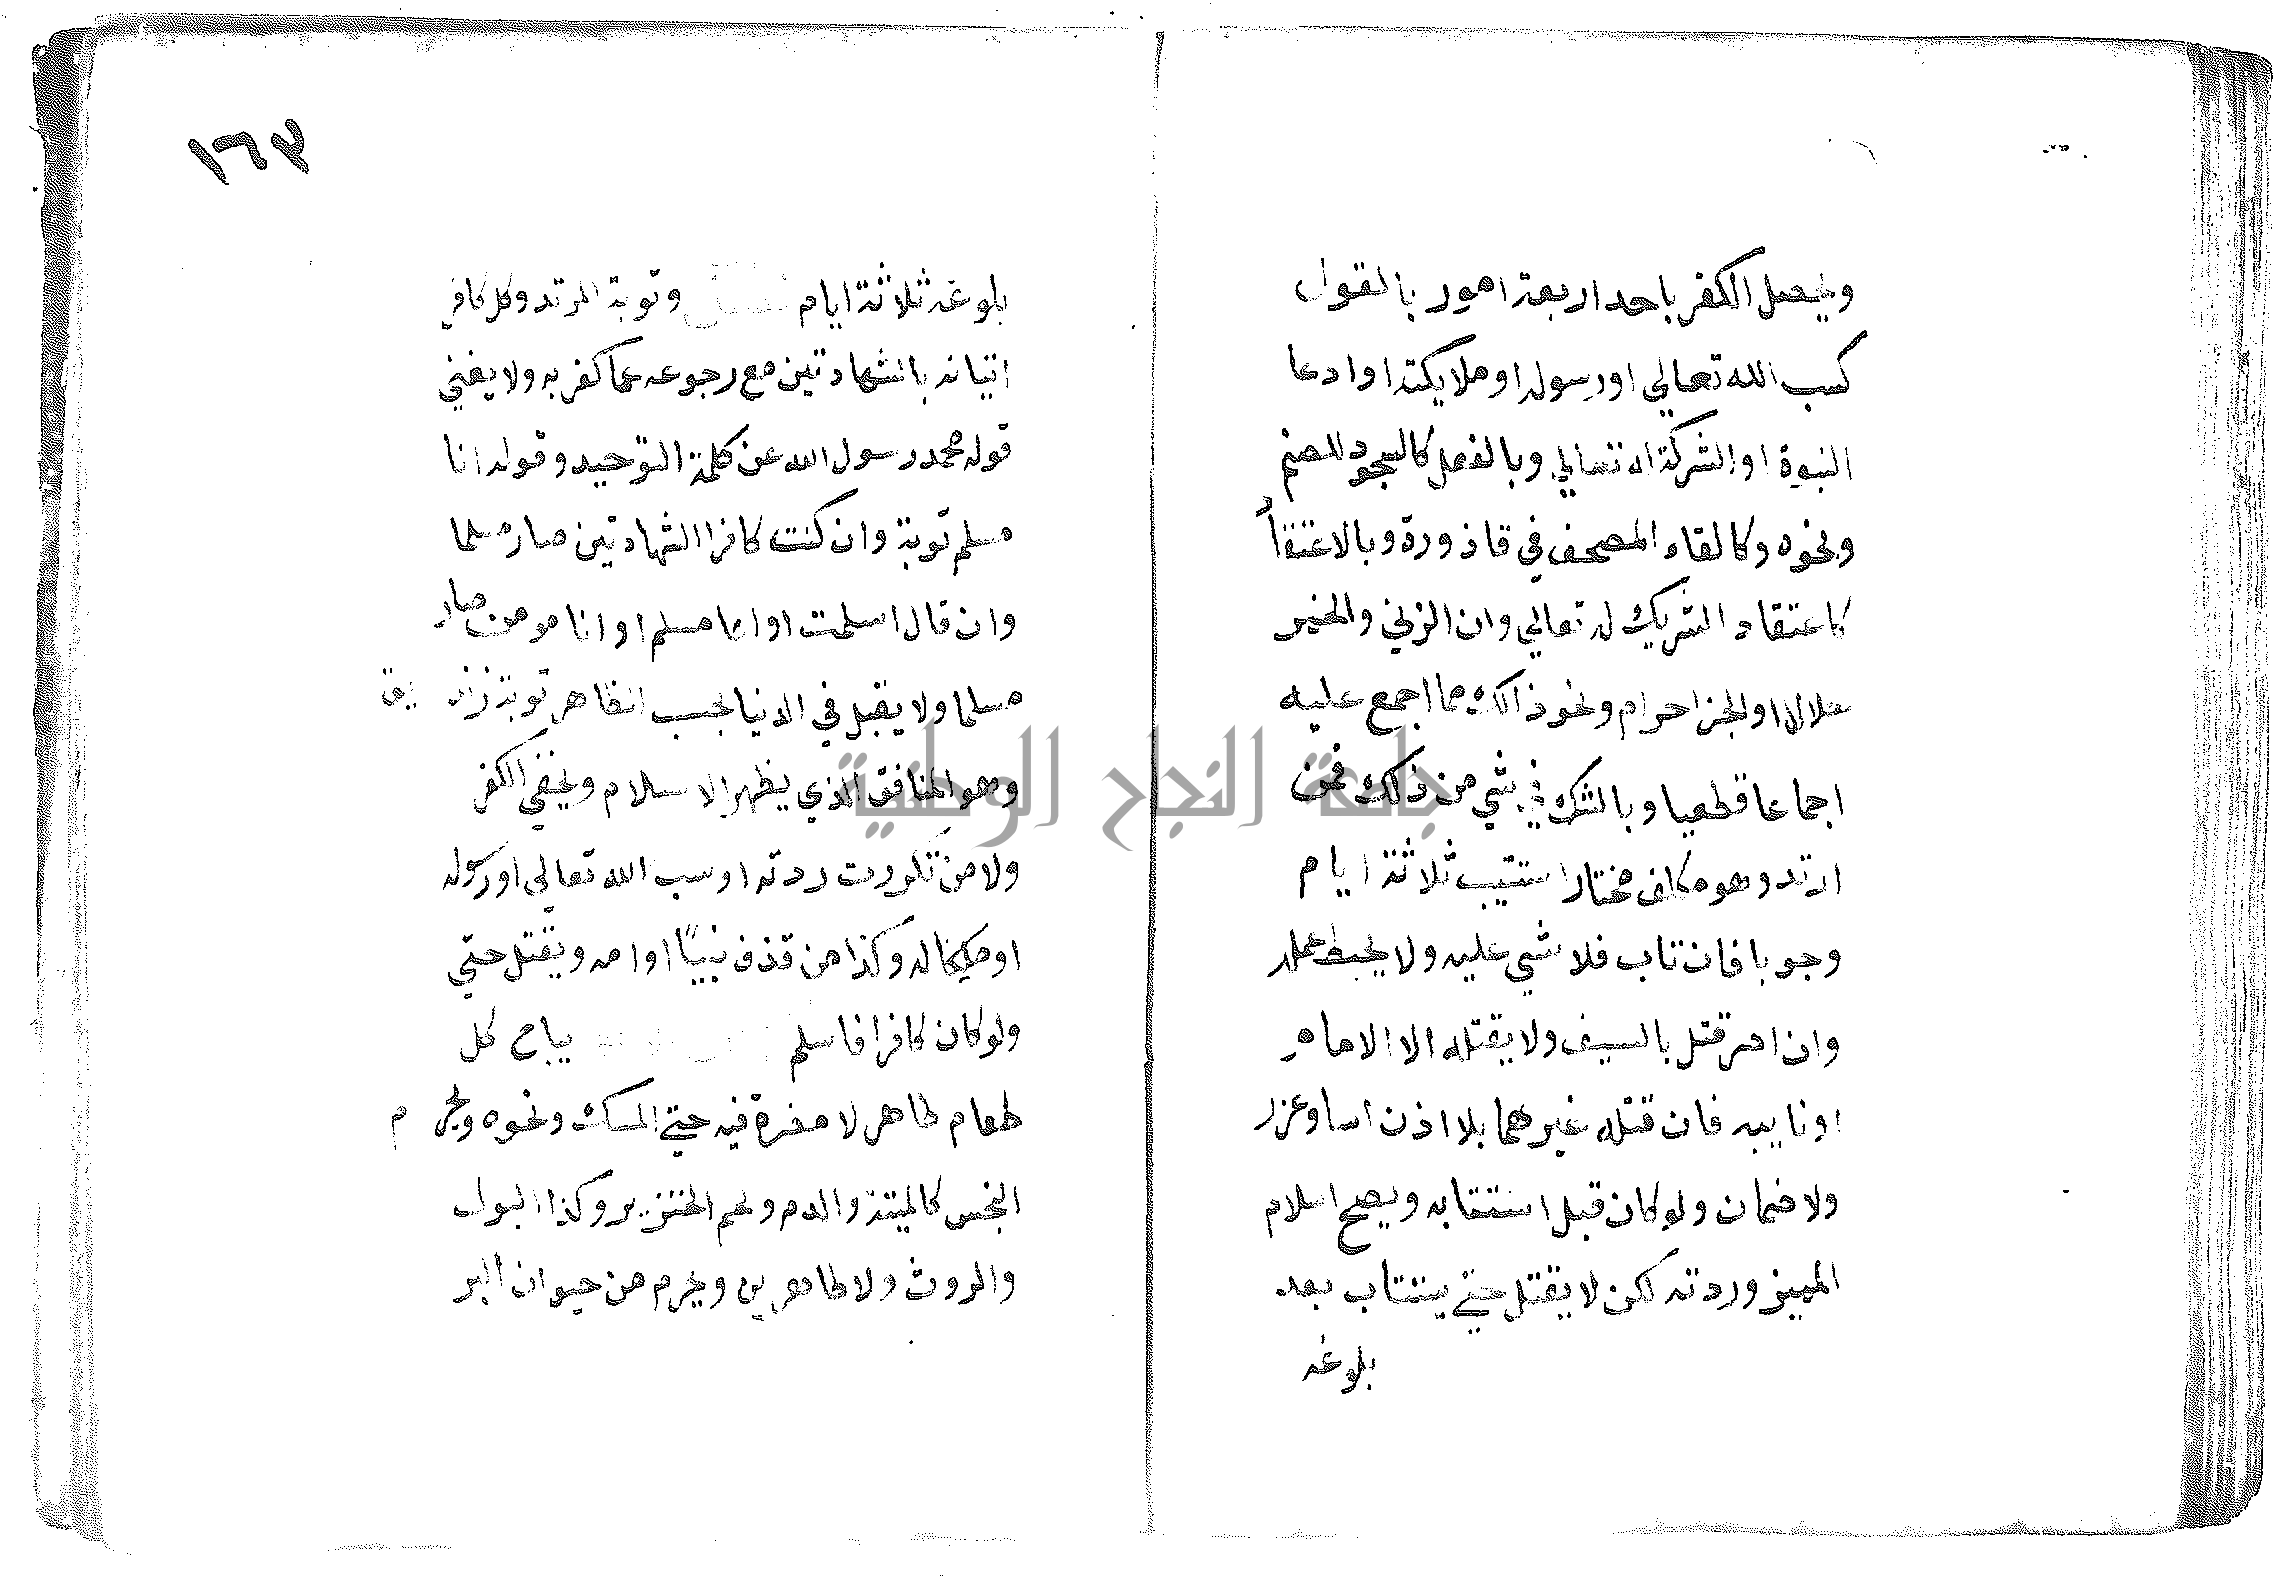 ويحصل الكفر باحد اربعة امور بالقول
كسب الله تعالي او رسوله او ملايكته او ادعا
النبوة او الشركة له تعالي وبالفعل كالسجود للصنم
ونحوه وكالقاء المصحف في قاذورة وبالاعتقاد
كاعتقاد الشريك له تعالي وان الزني والخمر
حلال او الخبز حرام ونحو ذالك مما اجمع عليه
اجماعا قطعيا وبالشك في شي من ذلك فمن
ارتد وهو مكلف مختار استتيب ثلاثة ايام
وجوبا فان تاب فلا شي عليه ولا يحبط عمله
وان اصر قتل بالسيف ولا يقتله الا الامام
او نايبه فان قتله غيرهما بلا اذن اسا وعزر
ولا ضمان ولو كان قبل استتابه ويصح اسلام
المميز وردته لكن لا يقتل حتي يستتاب بعد
بلوغه
١٦٣
بلوغه ثلاثة ايام وتوبة المرتد وكل كافر
اتيانه بالشهادتين مع رجوعه عما كفر به ولا يغني
قوله محمد رسول الله عن كلمة التوحيد وقوله انا
مسلم توبة وان كتب كافر الشهادتين صار مسلما
وان قال اسلمت او انا مسلم او انا مومن صار
مسلما ولا يقبل في الدنيا بحسب الظاهر توبة زنديق
وهو المنافق الذي يظهر الاسلام ويخفي الكفر
ولا من تكررت ردته او سب الله تعالي او رسوله
او ملكا له وكذا من قذف نبيًا او امه ويقتل حتي
ولو كان كافرا فاسلم يباح كل
طعام طاهر لا مضرة فيه حتي المسك ونحوه ويحرم
النجس كالميتة والدم ولحم الخنزير وكذا البول
والروث ولا طاهرين ويحرم من حيوان البر
جامعة النجاح الوطنية